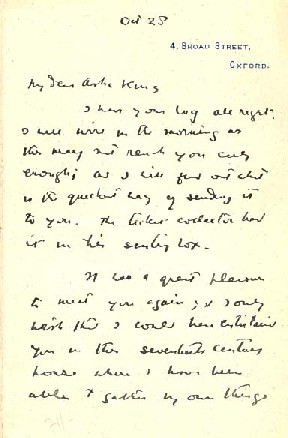 Oct 28
4, BROAD STREET,
OXFORD.
My dear Ashe King
I have your bag all right;
I will wire in the morning as
this may not reach you early
enough; as I will find out what
is the quickest way of sending it
to you. The ticket collector had
it in his sentry box.
It was a great pleasure
to meet you again; & I only
wish that I could have entertained
you in this seventeenth century
house where I have been
able to gather my own things